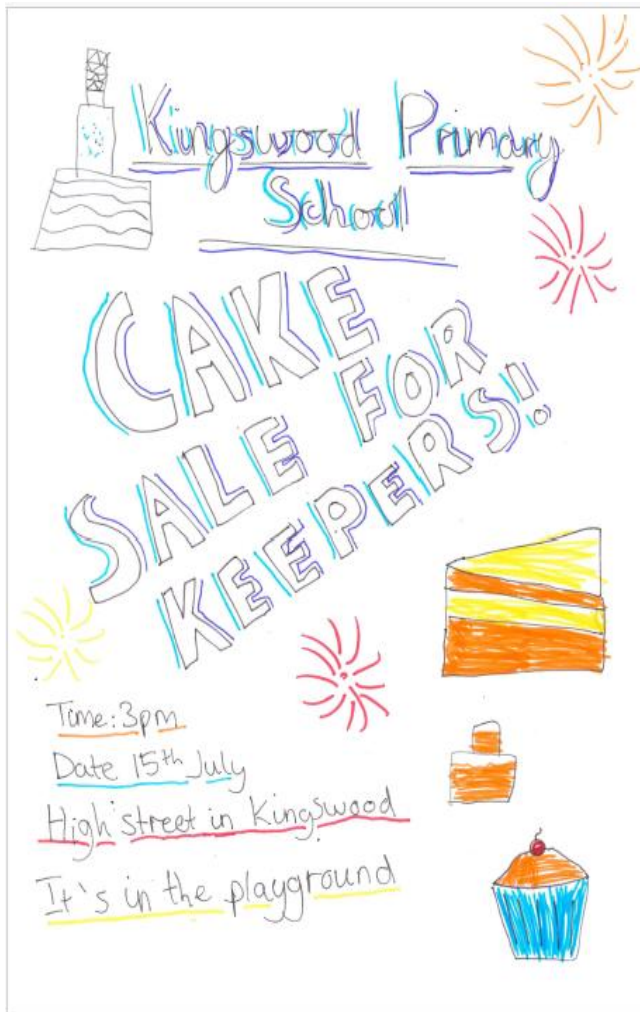 Kingswood Primary
School
CAKE
SALE FOR
KEEPERS!
Time: 3pm
Date 15th July
High street in Kingswood
It's in the playground